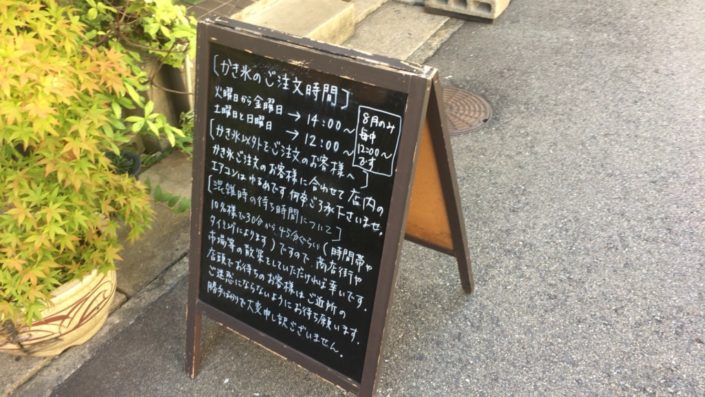 [かき氷のご注文時間]
火曜日から金曜日 → 14:00〜
土曜日と日曜日 → 12:00〜
8月のみ
毎日
12:00〜
です
[かき氷以外をご注文のお客様へ]
かき氷ご注文のお客様に合わせて店内の
エアコンはゆるめです 何卒ご了承下さいませ。
[混雑時の待ち時間について]
10名様で30分から45分ぐらい(時間帯や
タイミングによります)ですので 商店街や
市場等の散策をしていただければ幸いです。
店頭でお待ちのお客様はご近所の
ご迷惑にならないようにお待ち願います。
勝手ばかりで大変申し訳ございません。